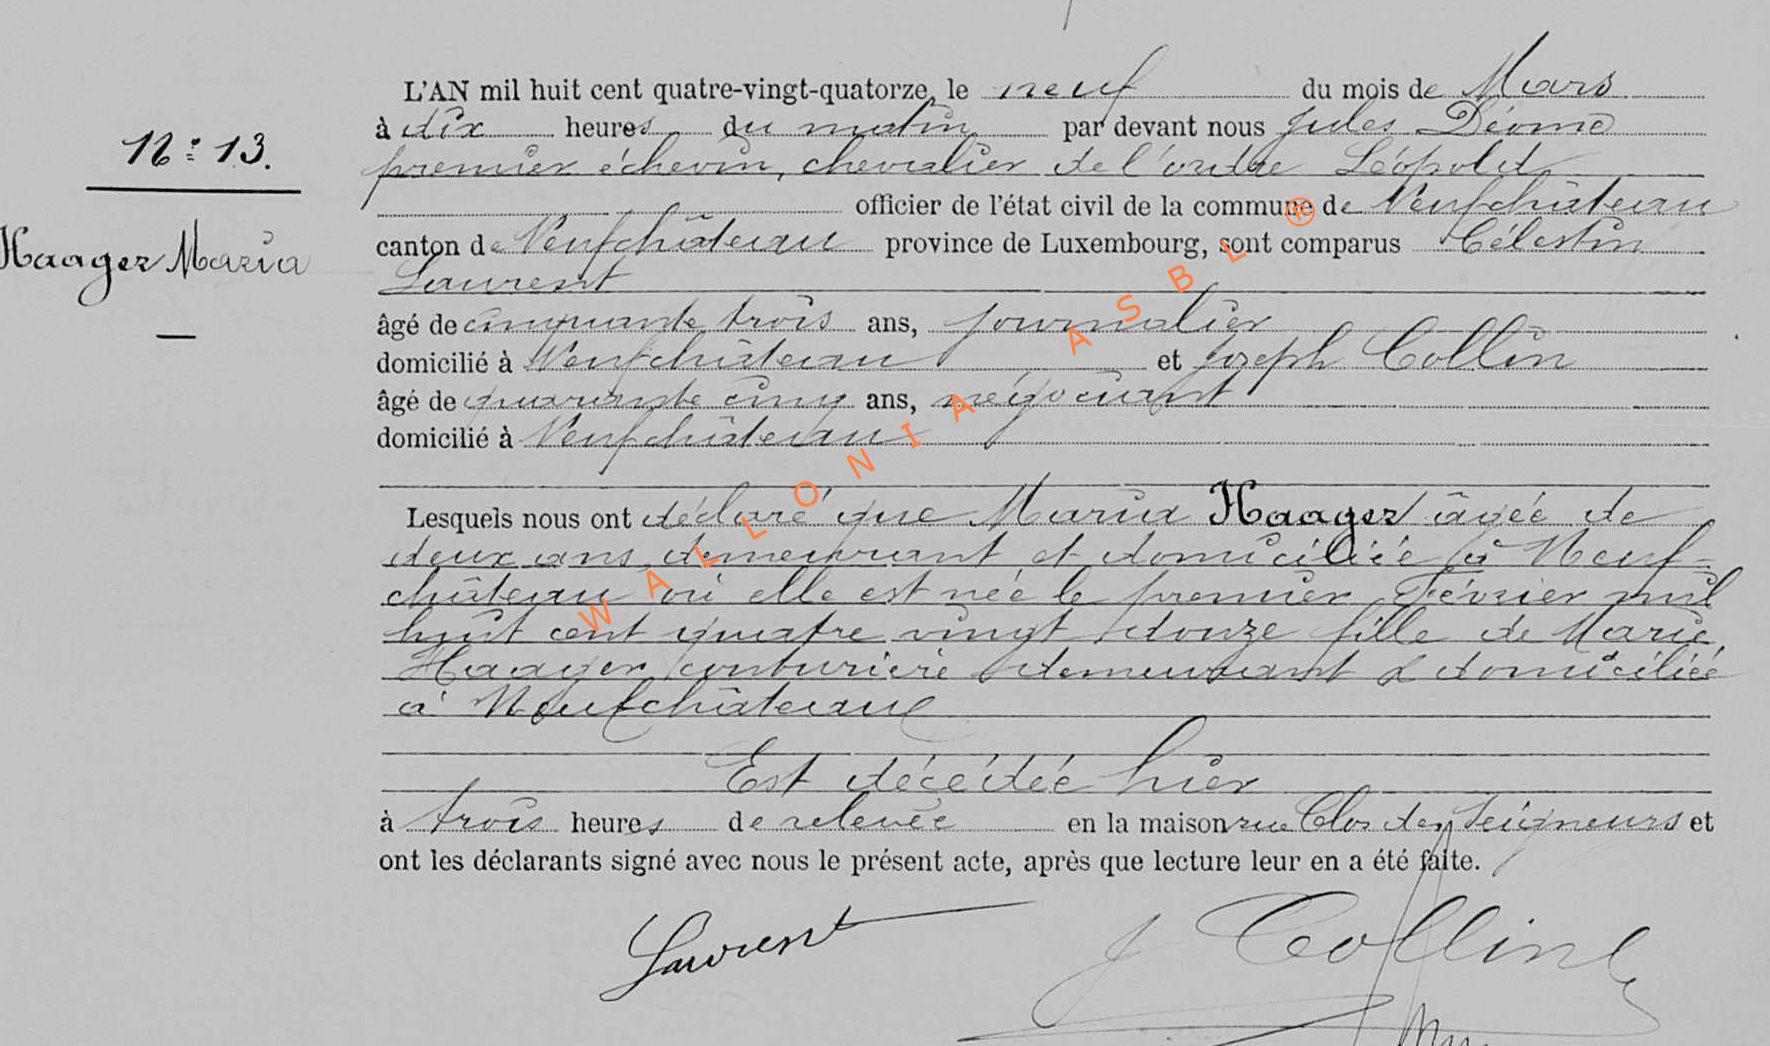 L'AN mil huit cent quatre-vingt-quatorze, le neuf du mois de Mars
à dix heures du matin par devant nous Jules Déome
premier échevin, chevalier de l'ordre Léopold
officier de l'état civil de la commune de Neufchâteau
canton de Neufchâteau province de Luxembourg, sont comparus Célestin
Laurent
âgé de cinquante trois ans, journalier
domicilié à Neufchâteau et Joseph Collin
âgé de quarante cinq ans, négociant
domicilié à Neufchâteau
N° 13.
Haager Maria
Lesquels nous ont déclaré que Maria Haager âgée de
deux ans, demeurant et domiciliée à Neuf-
château où elle est née le premier Février mil
huit cent quatre vingt douze fille de Marie
Haager couturière demeurant & domiciliée
à Neufchâteau
Est décédée hier
à trois heures de relevée en la maison rue Clos des Seigneurs et
ont les déclarants signé avec nous le présent acte, après que lecture leur en a été faite.
Laurent
J Collin
WALLONIA ASBL ®